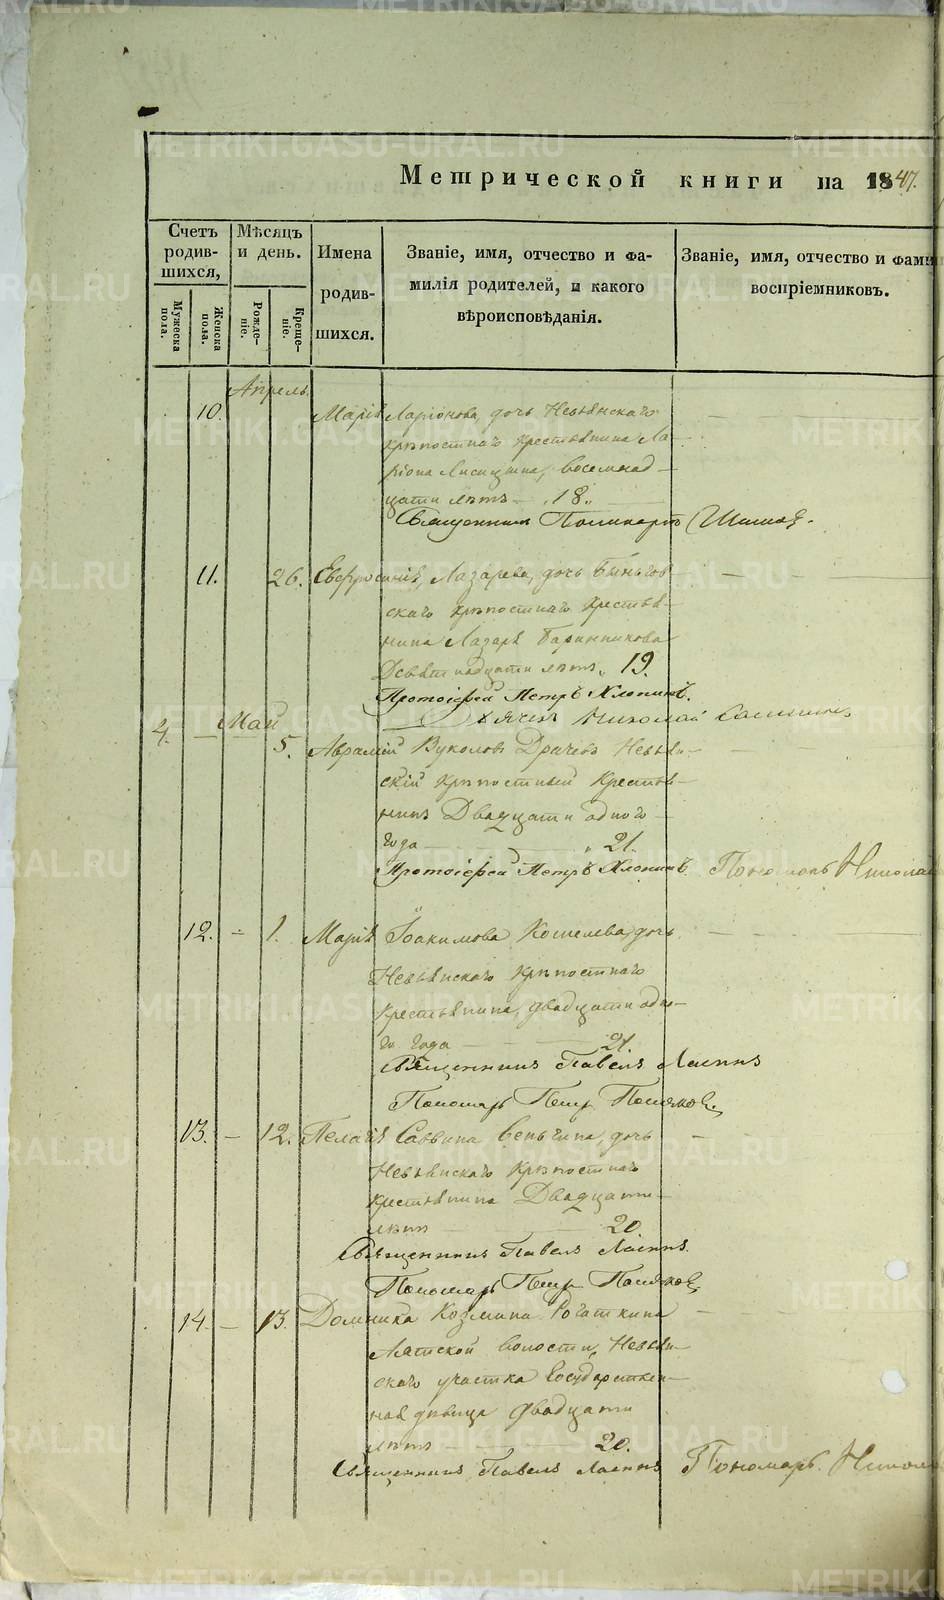 Метрической книги на 1847.
Счетъ родив-шихся,
Мѣсяцъ и день.
Имена родив-шихся.
Званіе, имя, отчество и фа-
милія родителей, и какого
вѣроисповѣданія.
Званіе, имя, отчество и фами
воспріемниковъ.
Мужеска пола.
Женска пола.
Рожде-ніе.
Креще-ніе.
Апрель
10. Марія Ларіонова, дочь Невьянскаго
крѣпостнаго крестьянина Ла-
ріона Лисицына, восемнад-
цати лѣтъ 18.
Священникъ Поликарпъ
11. 26. Евфросинія, Лазарева, дочь Быньгов-
скаго крѣпостнаго крестья-
нина Лазаря Баранникова
Девятнадцати лѣтъ 19.
Протоіерей Петръ Хлопинъ.
Дьячекъ Николай
Май
4. 5. Аврамій Вуколовъ Драчевъ Невьян-
скій крѣпостный Крестья-
нинъ Двадцати одного
года 21.
Протоіерей Петръ Хлопинъ. Пономарь Никола
12. 1. Марія Іоакимова Кошелева, дочь
Невьянскаго крѣпостнаго
крестьянина, двадцати одно-
го года 21.
Священникъ Павелъ
Пономарь Петр
13. 12. Пелагія Саввина Сеньгина, дочь
Невьянскаго крѣпостнаго
крестьянина Двадцати
лѣтъ 20.
Священникъ Павелъ
Пономарь Петр
14. 13. Домника Козмина Рогаткина
волости, Невьян-
скаго участка Государствен-
ная дѣвица двадцати
лѣтъ 20.
Священникъ Павелъ Пономарь Никола
METRIKI.GASO-URAL.RU